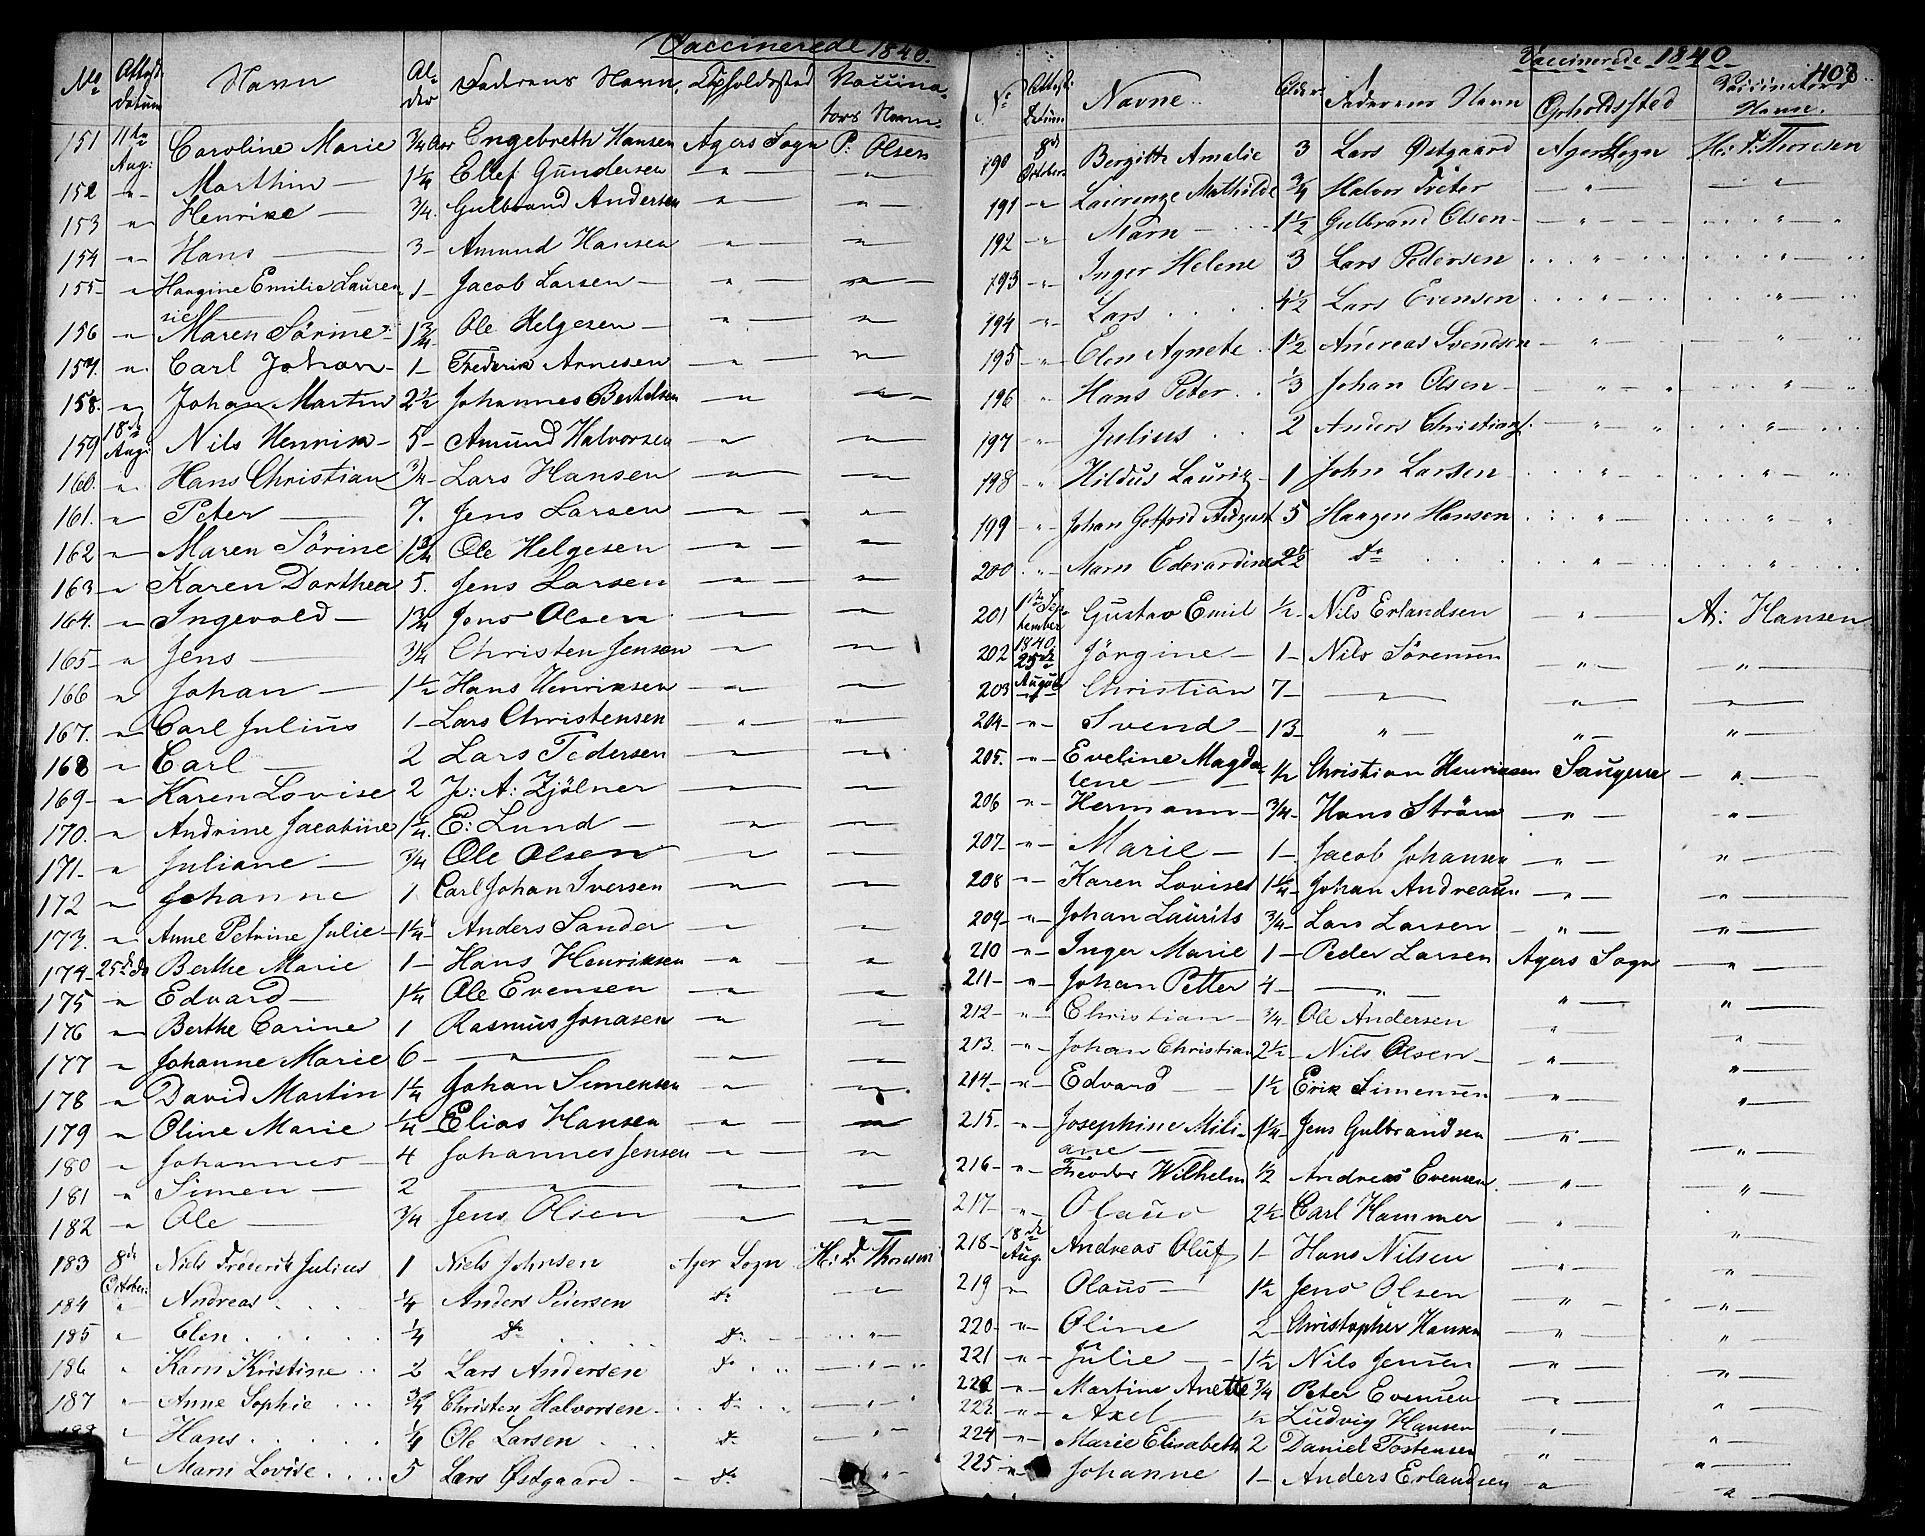 Vaccinerede 1840.
No Attest datum Navn Alder Faderens Navn. Opholdssted Vaccinators Navn.
151 11te Aug: Caroline Marie 3/4 Aar Engebreth Hansen Agers Sogn P. Olsen
152 " Marthin — 1 1/4 Ellef Gundersen " "
153 " Henrikc — 3/4. Gulbrand Andersen " "
154 " Hans — 3 - Amund Hansen " "
155 - " Haagine Emilie Lauren 1 - Jacob Larsen — " "
sie
156 " Maren Sörine - 1 3/4 Ole Helgesen — " "
157. " Carl Johan - 1 - Frederik Arnesen " "
158. " Johan Martin 2 1/2 Johannes Bertelsen " "
159 18de Aug: Nils Henrik - 5 - Amund Halvorsen " "
160. " Hans Christian 3/4 - Lars Hansen " "
161. " Peter — 7. Jens Larsen " "
162 " Maren Sörine 1 3/4 Ole Helgesen " "
163 " Karen Dorthea 5. Jens Larsen " "
164. " Ingevold — 1 3/4 Jens Olsen " "
165 - " Jens — 3/4 Christen Jensen " "
166 " Johan — 1 1/2 Hans Henriksen " "
167. " Carl Julius 1 - Lars Christensen " "
168 " Carl — 2 Lars Pedersen " "
169 - " Karen Lovise 2 J: A: Zjölner " "
170. " Andrine Jacobine 1 1/4. E: Lund — " "
171 - " Juliane — 3/4 Ole Olsen " "
172 " Johanne 1. Carl Johan Iversen " "
173. " Anne Petrine Julie - 1 1/4 - Anders Sander " "
174 - 25de do Berthe Marie 1 - Hans Henriksen " "
175 " Edvard — 1 1/4 Ole Evensen " "
176 " Berthe Carine 1 Rasmus Jonasen " "
177 " Johanne Marie 6 - " " "
178 " David Martin 1 1/4 Johan Simensen " "
179 " Oline Marie 1/4 - Elias Hansen " "
180 " Johannes - 4 Johannes Jensen " "
181 " Simen — 2 " " "
182 " Ole — 3/4 Jens Olsen " "
183 8de October: Nils Frederik Julius 1 Niels Johnsen Ager Sogn H: T: Thoresen
184 " Andreas . . . 1/4 Anders Petersen do "
185 " Elen . . . . 1/4 do . . . do "
186 " Karn Kristine . . 2 Lars Andersen do "
187 " Anne Sophie . . . 3/4 Christen Halvorsen do "
" Hans . . . . . 1/4 Ole Larsen . . . do "
" Marn Lovise . . . . 5 Lars Østgaard . do "
Vaccinerede 1840.
408
No Attest: Datum Navne. Alder Faderens Navn Opholdssted Vaccinators Navn.
190 8de October Bergitte Amalie 3 Lars Østgaard Ager Sogn H: T: Thoresen
191 " Laurenze Mathilde 3/4 Halvor Freter " "
192 " Marn - . . . 1 1/2 Gulbrand Olsen - " "
193 " Inger Helene 3 Lars Pedersen " "
194 " Lars . . . . . 4 1/2 Lars Evensen " "
195 " Elen Agnete . 1 1/2 Andreas Svendsen " "
196 " Hans Peter . . 1/3 Johan Olsen - " "
197 " Julius . . 2 Anders Christians. " "
198 " Hildus Lauriz - 1 John Larsen " "
199 " Johan Gotfrid August 5 Haagen Hansen " "
200 " Marn Edevardine 2 1/2 do " "
201 1te September Gustav Emil 1/2 - Nils Erlandsen " A: Hansen
202 1840. 25de August Jörgine - 1 - Nils Sörensen " "
203 Christian 7 - " " "
204 - " Svend - 13 " " "
205. " Eveline Magda
lene — 1/2 Christian Henriksen Saugene "
206 " Hermann - 3/4 - Hans Ström " "
207 - " Marie - 1 - Jacob Johansen " "
208 " Karen Lovise 1 1/4 - Johan Andreasen " "
209 - " Johan Laurits 3/4 - Lars Larsen " "
210 " Inger Marie 1 - Peder Larsen Agers Sogn "
211 - " Johan Petter 4 - " " "
212 - " Christian - 3/4 - Ole Andersen " "
213. " Johan Christian 2 1/2 - Nils Olsen - " "
214 - " Edvard 1 1/2 Erik Simensen " "
215 - " Josephine Mili-
ane — 1 1/4 - Jens Gulbrandsen " "
216 - " Theodor Wilhelm 1/2 Andreas Evensen. " "
217 - " Olaus 2 1/2 - Carl Hammer " "
218 - 18de Aug. Andreas Oluf 1 - Hans Nilsen " "
219 " Olaus — 1 1/2 Jens Olsen " "
220 - " Oline 2 - Christopher Hansen " "
221 " Julie — 1 1/2 Nils Jensen " "
222 " Martine Anette 3/4 Peter Evensen " "
223. " Axel 1/2 Ludvig Hansen " "
224 " Marie Elisabeth 2 Daniel Tostensen " "
225 - " Johanne 1 - Anders Erlandsen " "